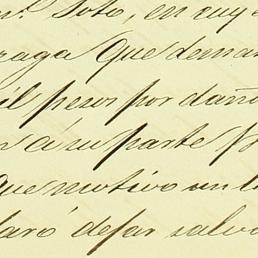 Soto, en cuy
raga que deman
il pesos por daño
n á su parte
que motivo un l
laró dejar salvo